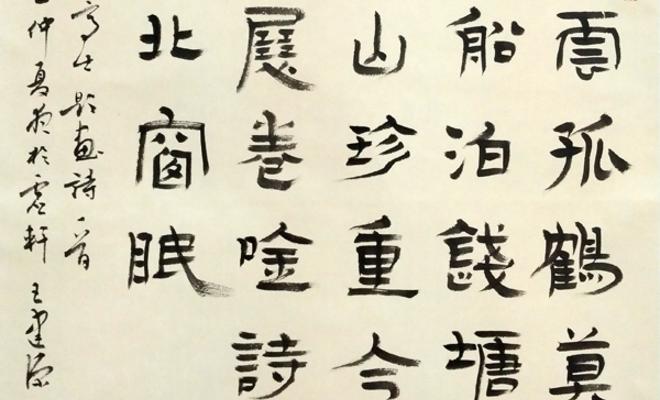 雲孤鶴莫
船泊錢塘
山珍重今
展卷唫詩
北窗眠
高士題畫詩一首
仲夏於虛軒 王建